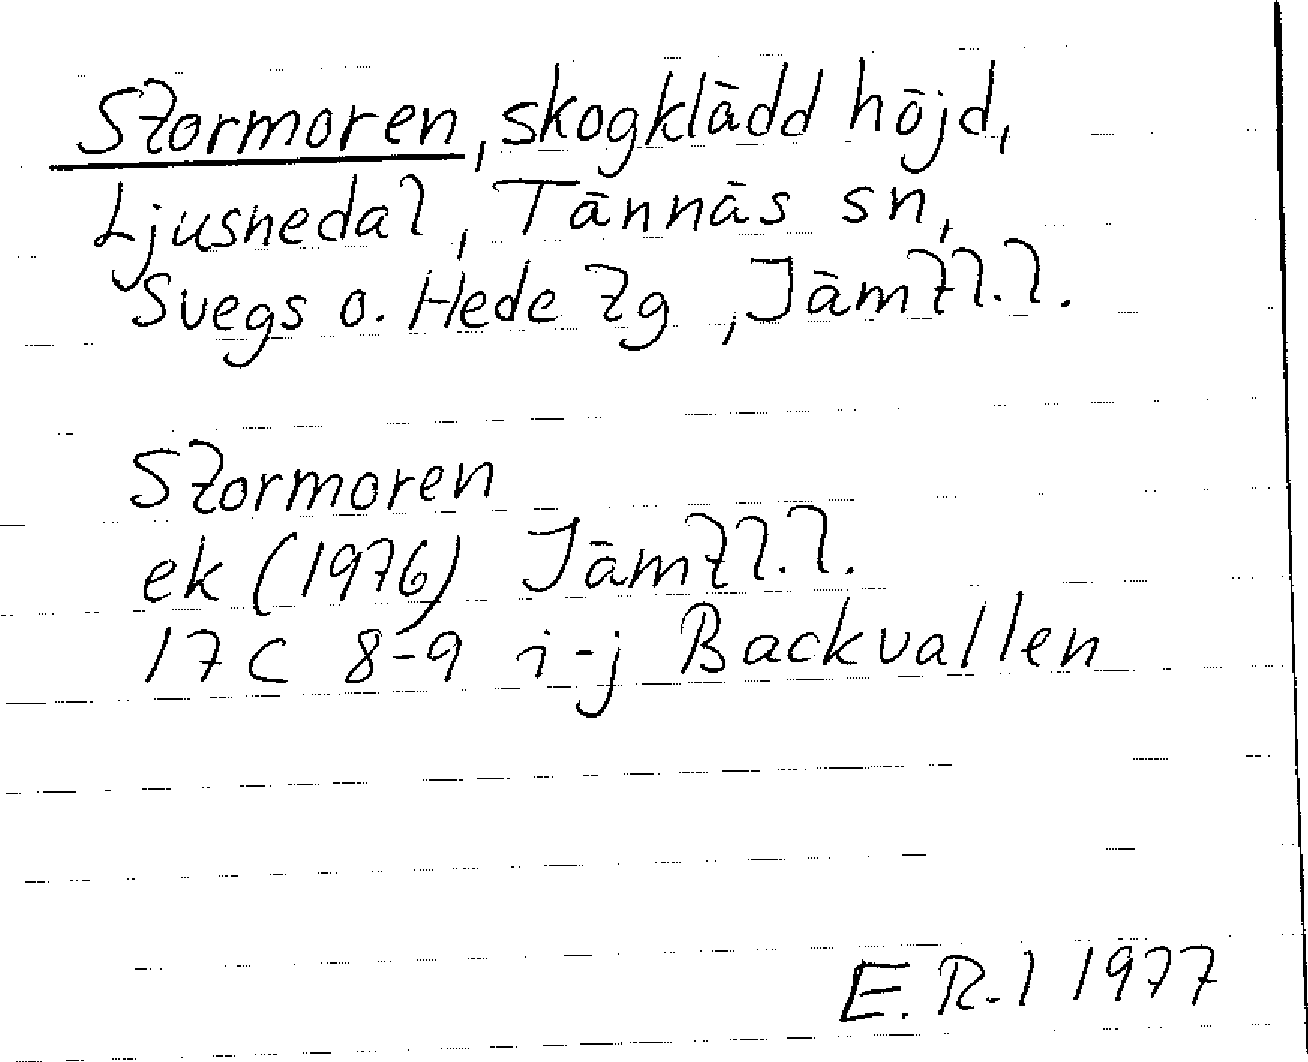 Stormoren, skogklädd höjd,
Ljusnedal, Tännäs sn,
Svegs o. Hede tg, Jämtl.l.
Stormoren
ek (1976) Jämtl.l.
17C 8-9 i-j Backvallen
E. R-l 1977